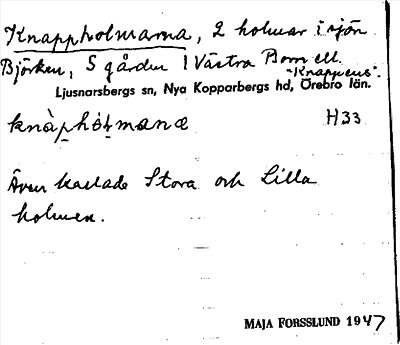 Knappholmarna, 2 holmar i sjön
Björken, S gården 1 Västra Born ell.
"Knappens".
Ljusnarsbergs sn, Nya Kopparbergs hd, Örebro län.
knàp̠hól̠manæ H33
Även kallade Stora och Lilla
holmen.
MAJA FORSSLUND 1947